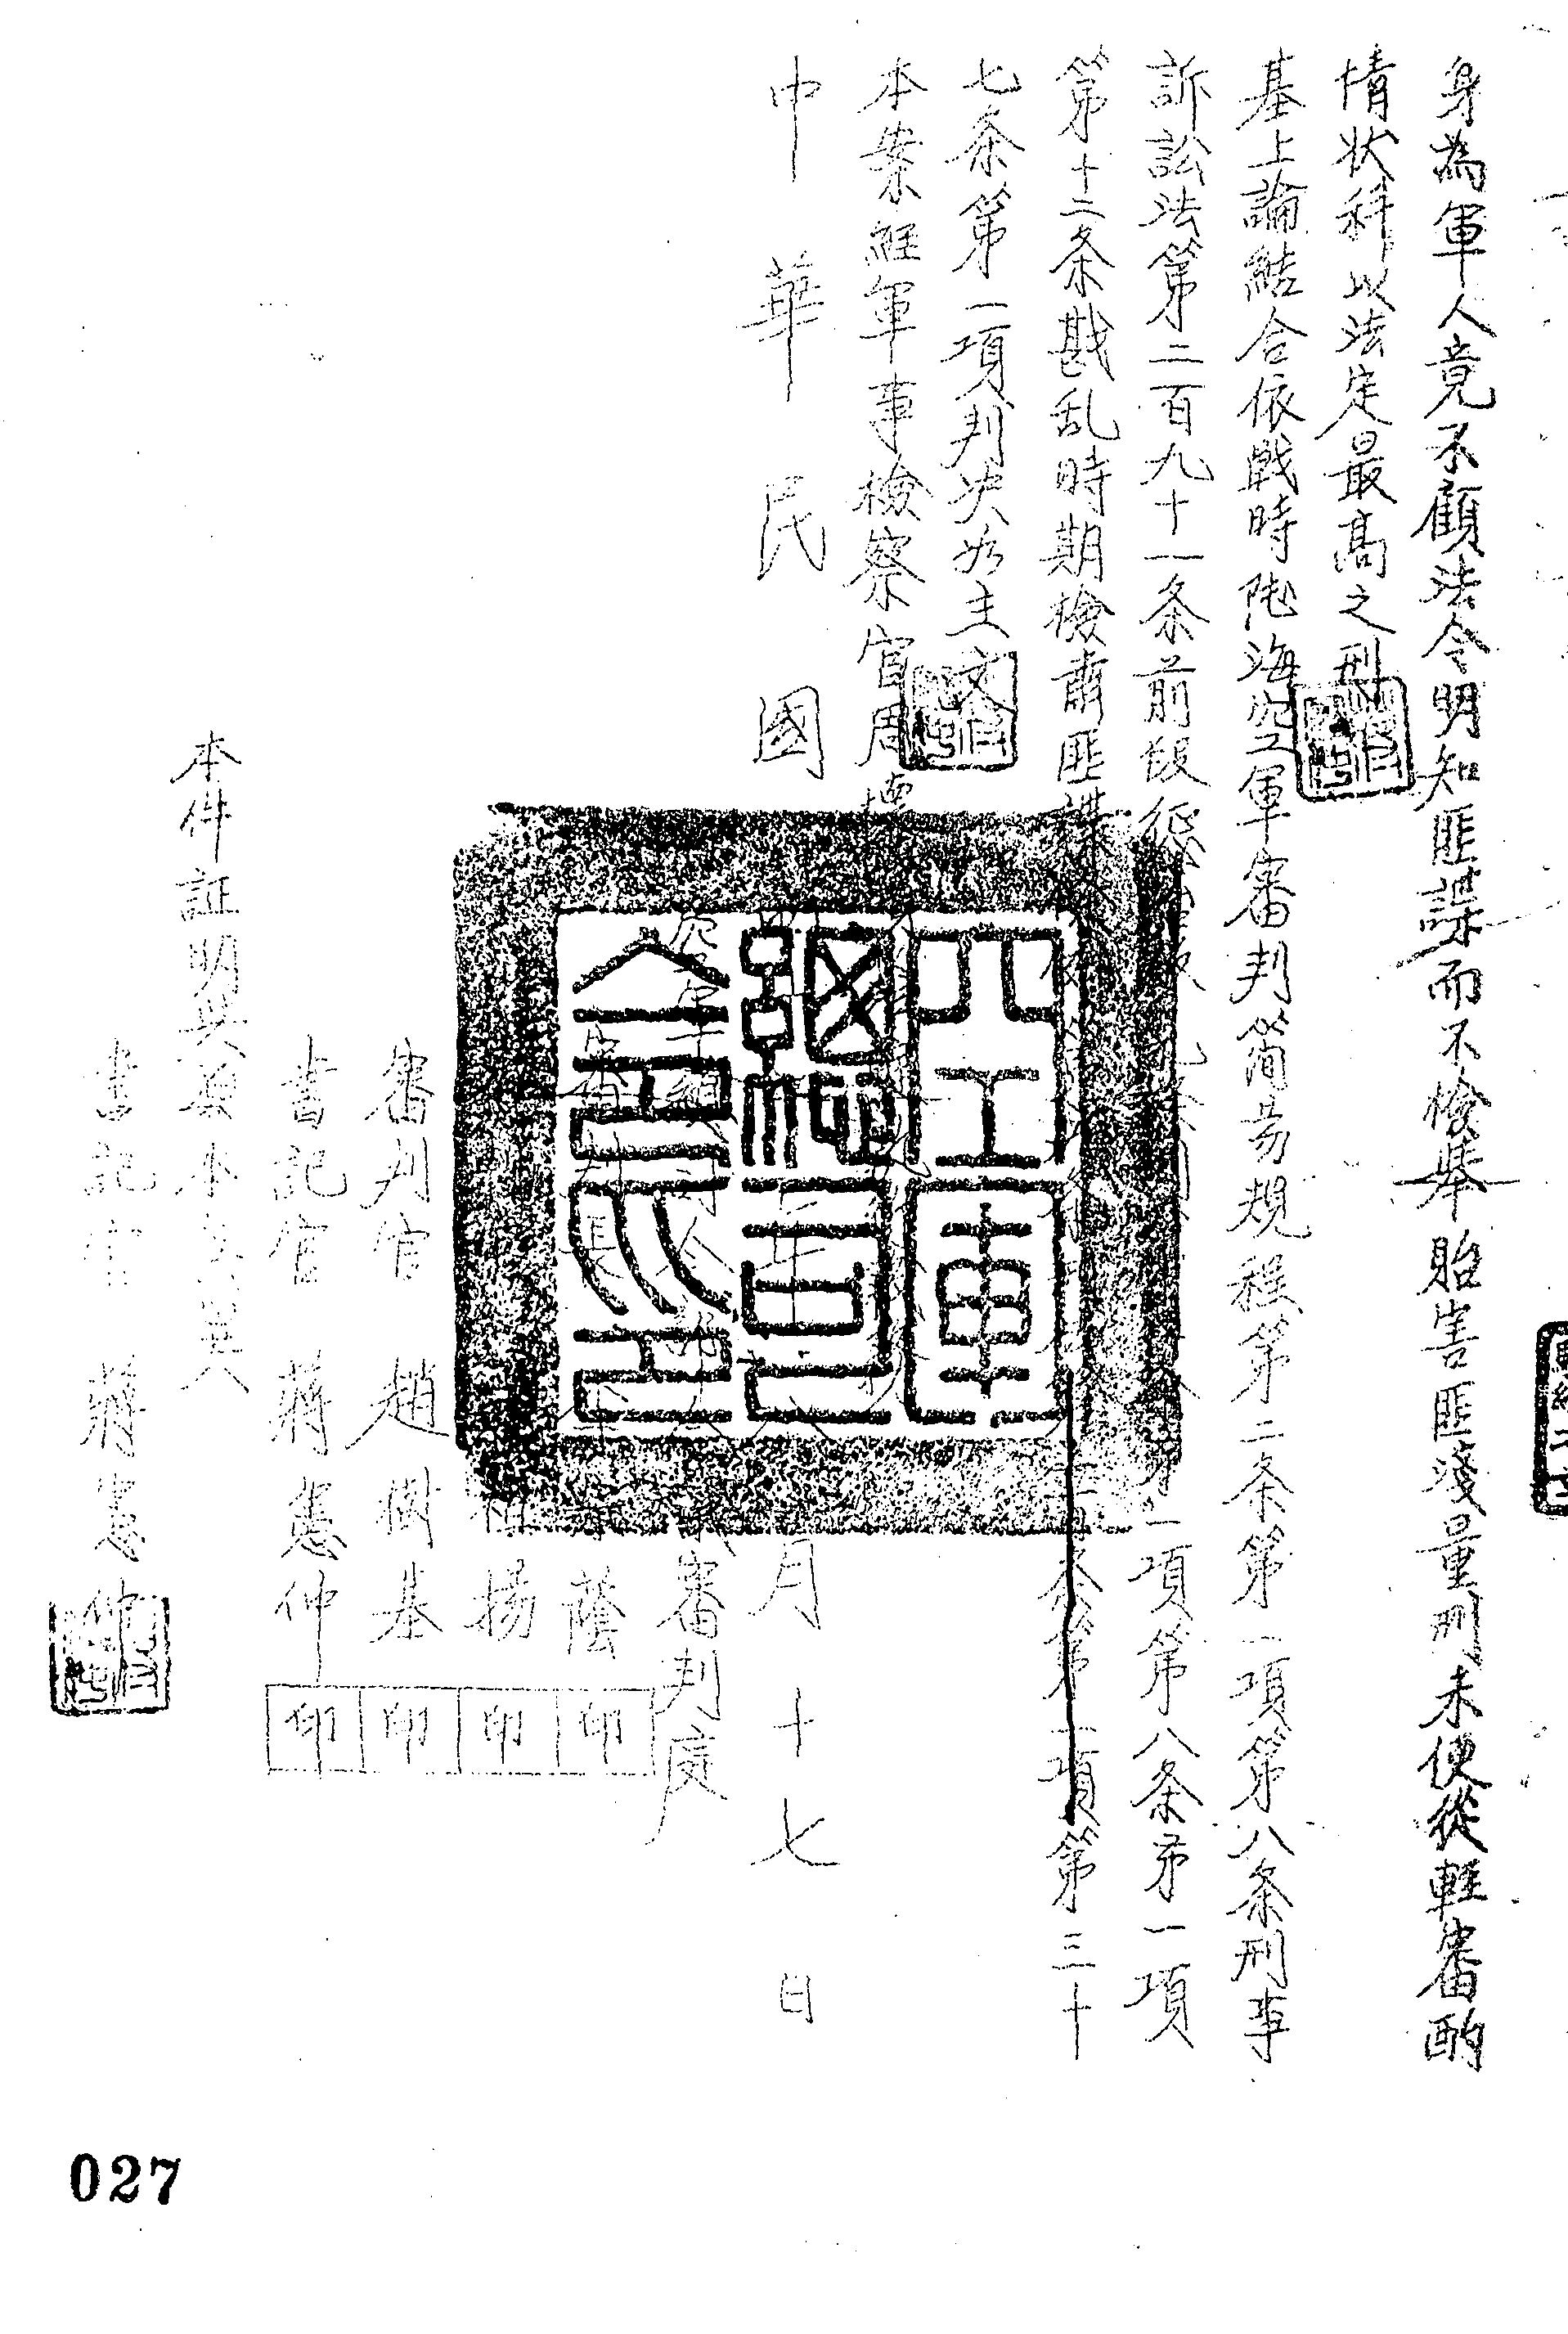 身為軍人竟不顧法令明知匪諜而不檢舉貽害匪淺量刑未便從輕審酌
情狀科以法定最高之刑
基上論結合依戰時陸海空軍審判簡易規程第二条第一項第八条刑事
訴訟法第二百九十一条前段懲 第一項第八条第一項
第十二条戡乱時期檢肅匪諜条例 条第一項第三十
七条第一項判决如主文
本案經軍事檢察官周
中華民國 年 月十七日
空軍總司令部 審判庭
審判長 蔭 印
揚 印
審判官 趙樹基 印
書記官 蔣憲仲 印
本件証明與原本無異
書記官 蔣憲仲
空軍總司令部
027